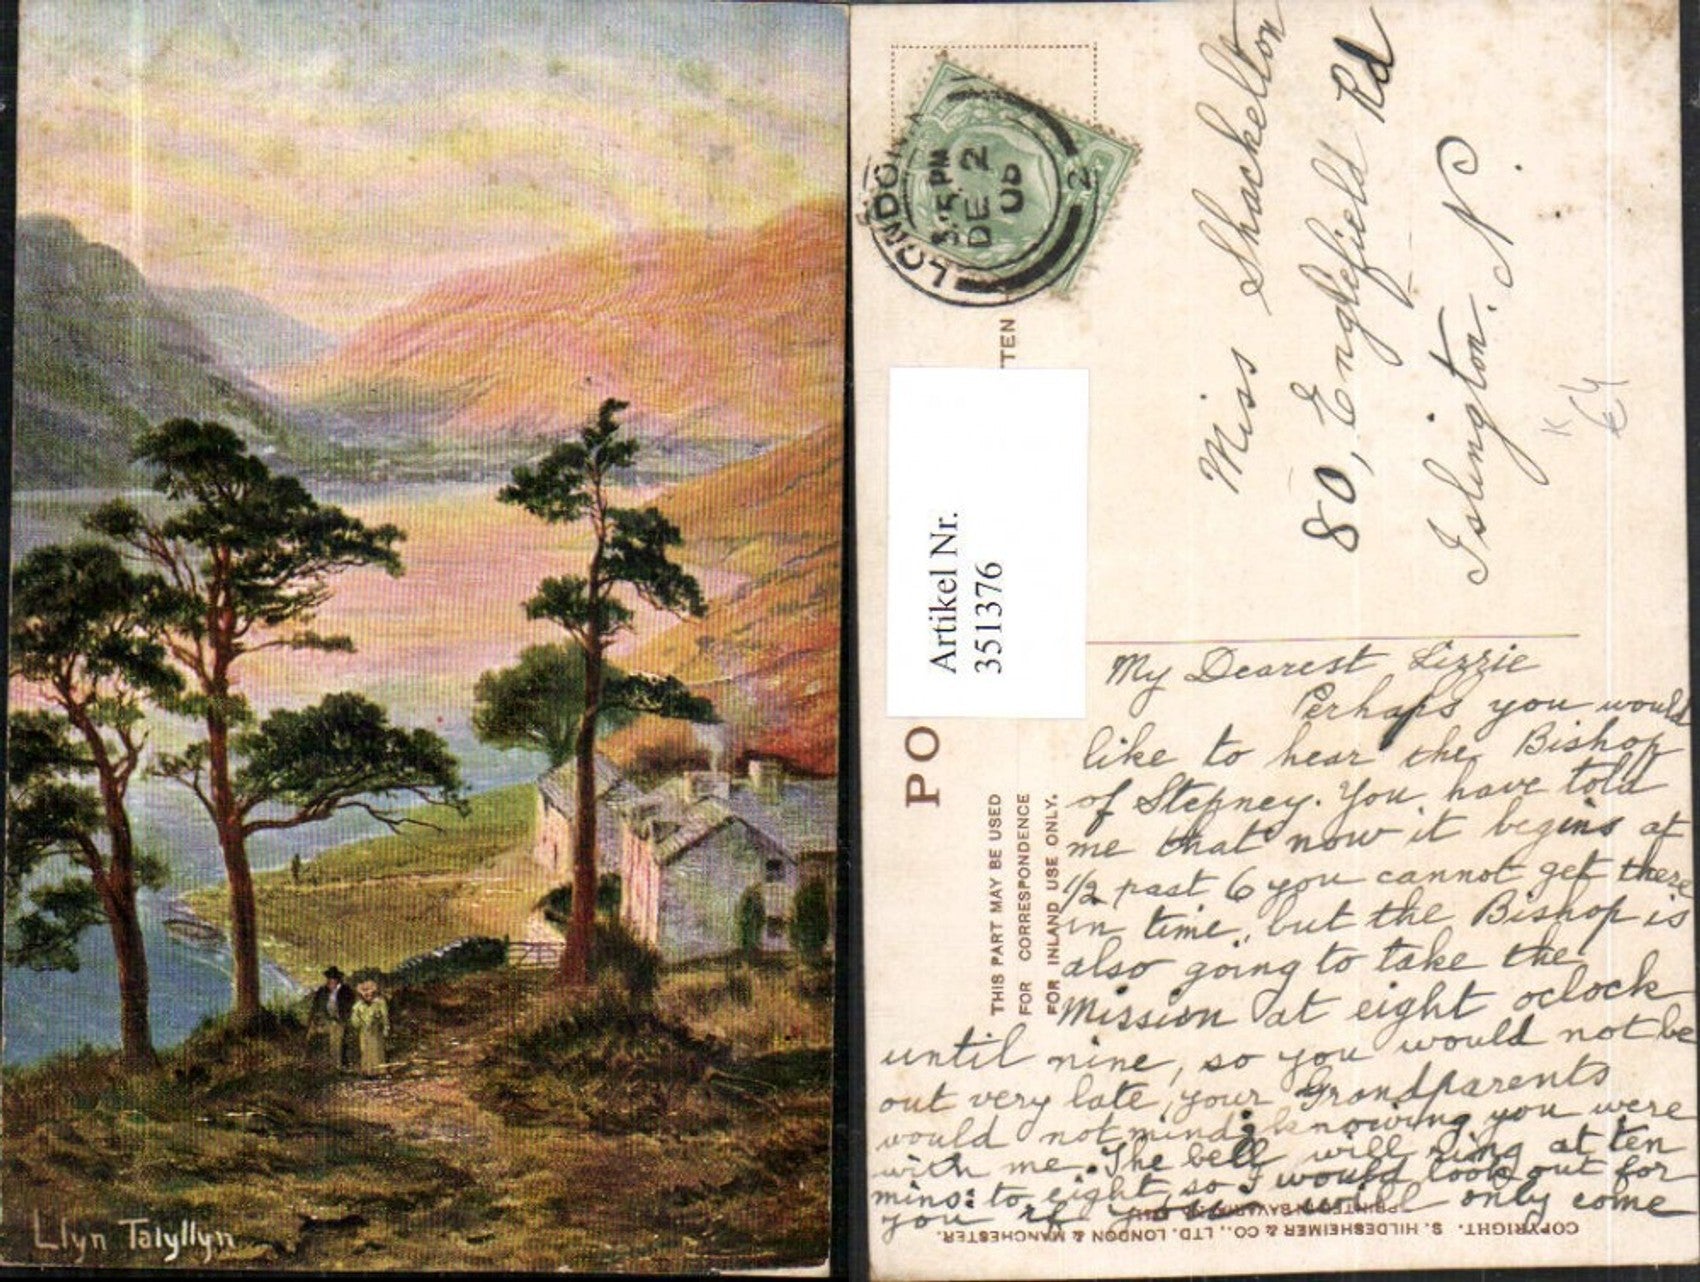 Llyn Talyllyn
LONDON. N
3.15 PM
DE 2
2
Miss Shackelton
80, Englefield Rd
Islington. N.
Artikel Nr.
351376
PO
TEN
THIS PART MAY BE USED
FOR CORRESPONDENCE
FOR INLAND USE ONLY.
My Dearest Lizzie
Perhaps you would
like to hear the Bishop
of Stepney. You have told
me that now it begins at
1/2 past 6 you cannot get there
in time, but the Bishop is
also going to take the
Mission at eight oclock
until nine, so you would not be
out very late, your Grandparents
would not mind knowing you were
with me. The bell will ring at ten
mins: to eight, so I would look out for
you if you will only come
COPYRIGHT. S. HILDESHEIMER & CO., LTD. LONDON & MANCHESTER.
PRINTED IN BAVARIA